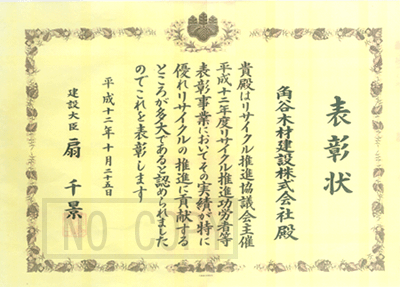 表彰状
角谷木材建設株式会社殿
貴殿はリサイクル推進協議会主催
平成十二年度リサイクル推進功労者等
表彰事業においてその実績が特に
優れリサイクルの推進に貢献する
ところが多大であると認められました
のでこれを表彰します
平成十二年十月二十五日
建設大臣 扇 千景
NO COPY